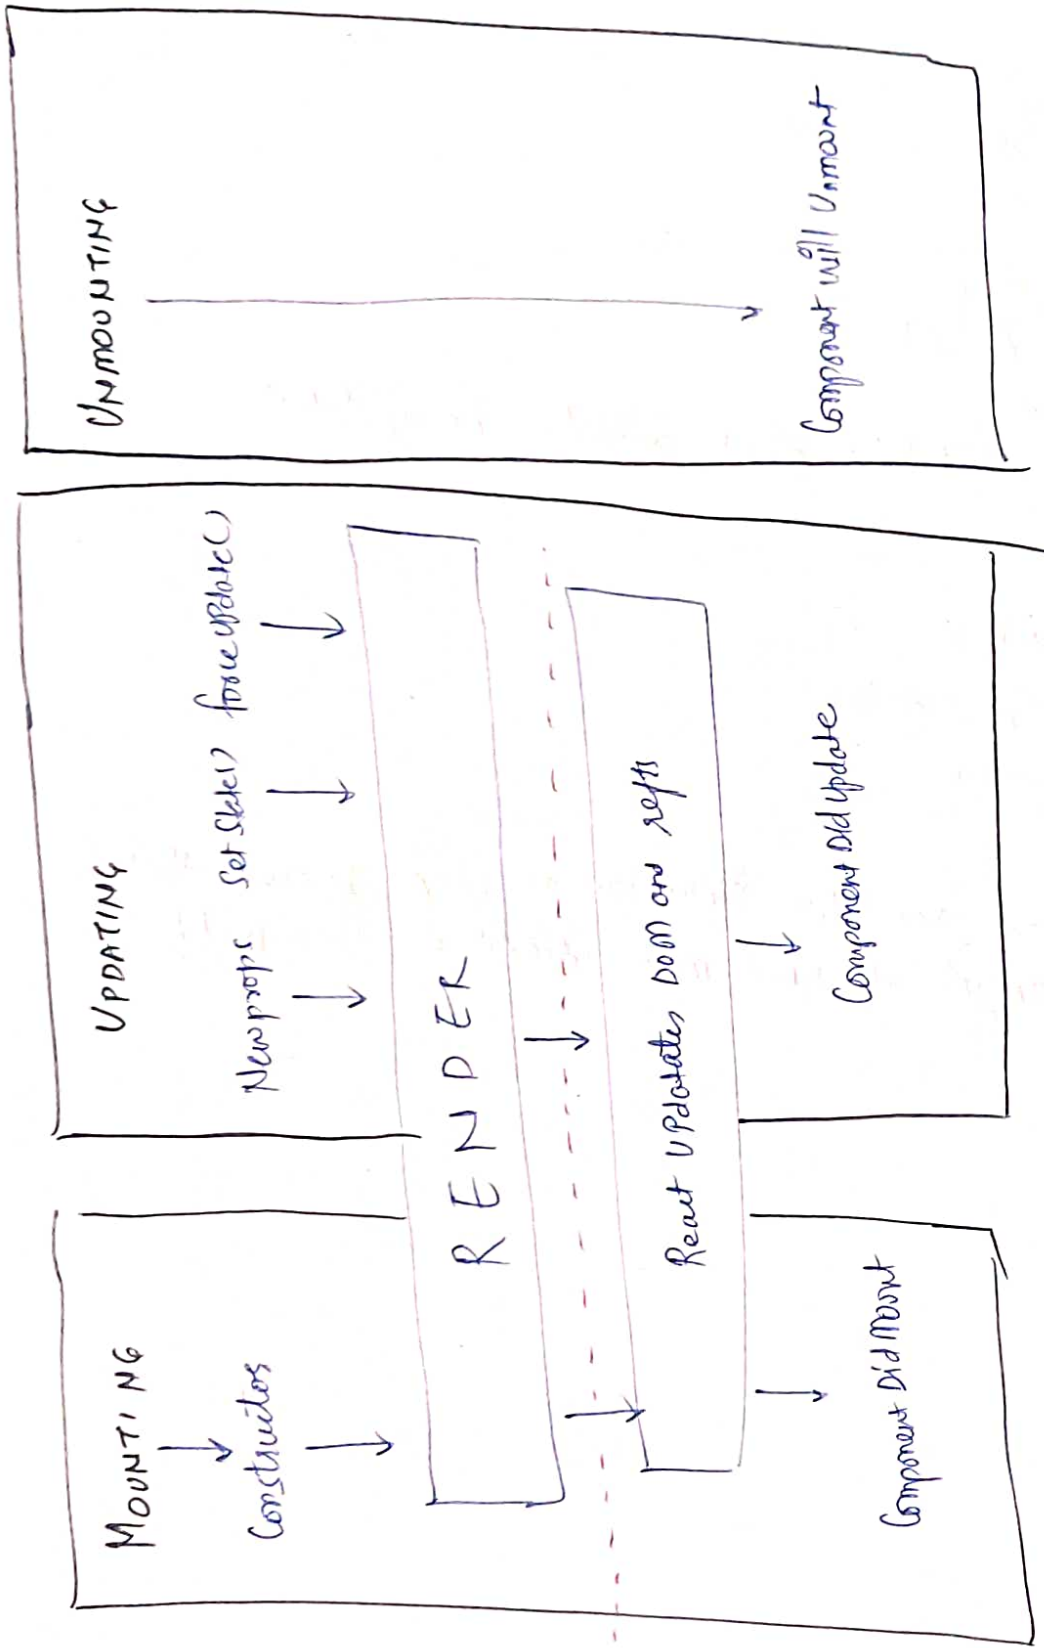 MOUNTING
Constructor
UPDATING
New props setState() forceUpdate()
RENDER
React UPdatates DOM and refts
Component Did Mount
Component Did Update
UNMOUNTING
Component will Unmount